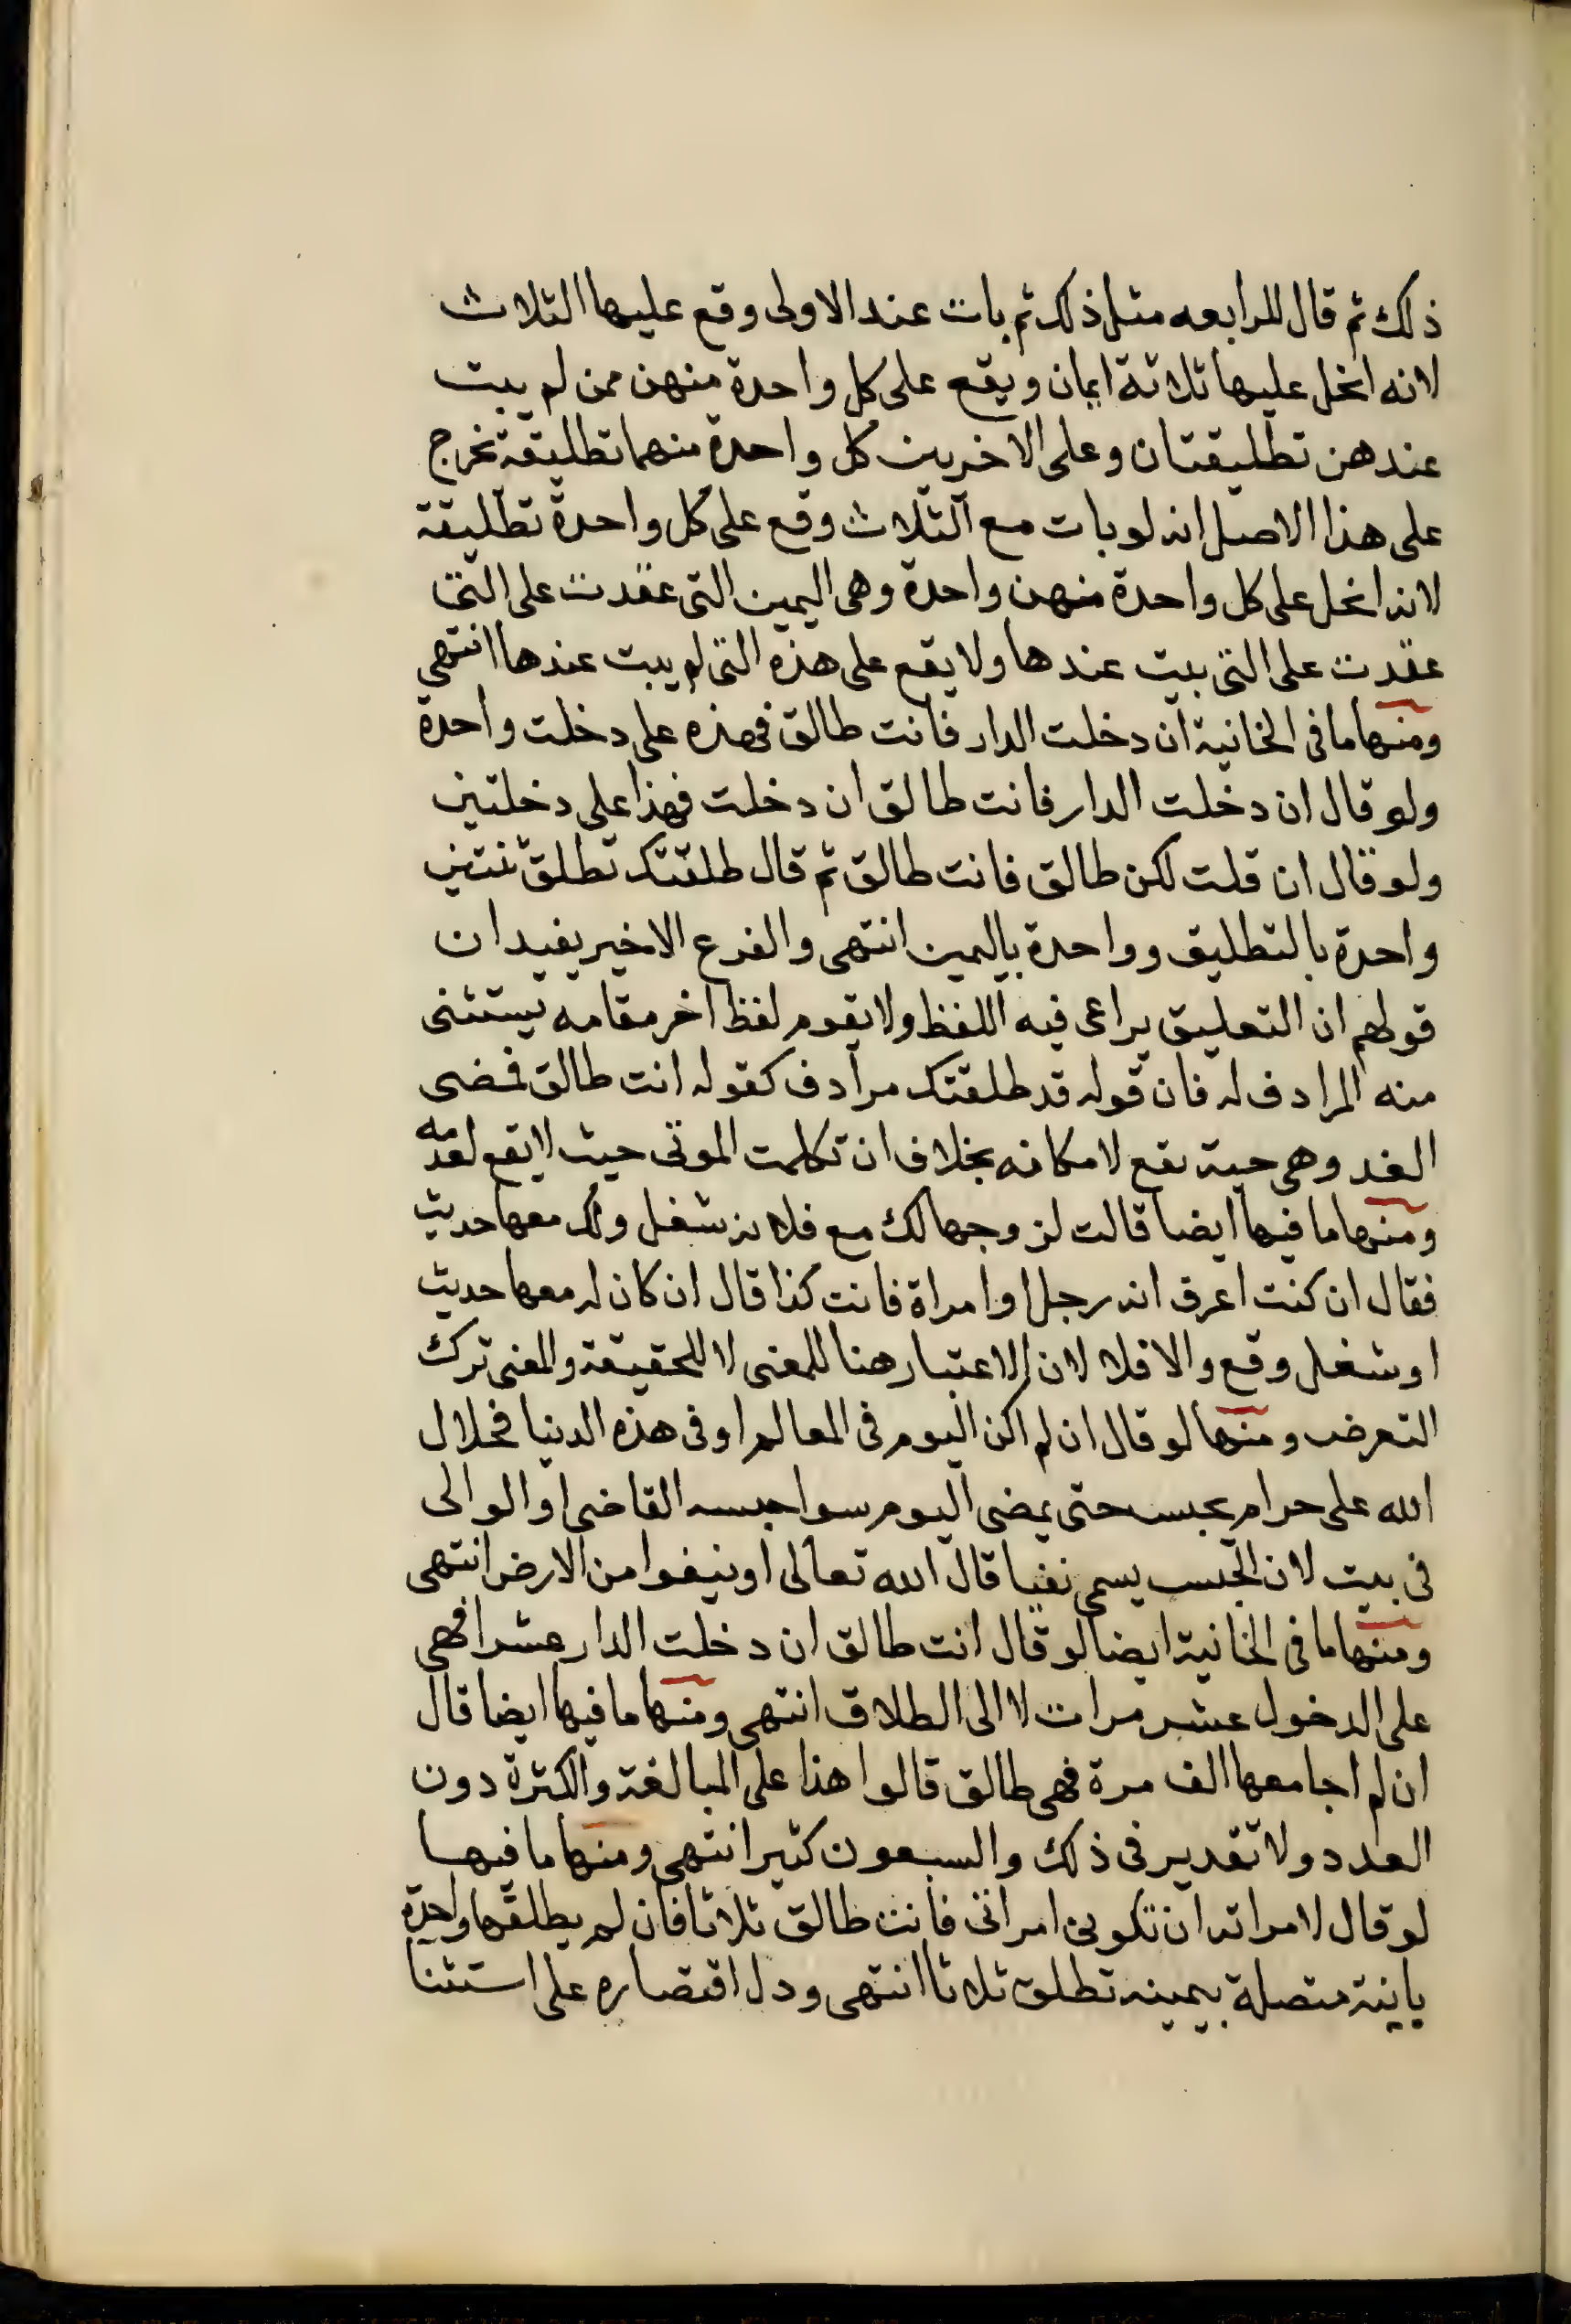 ذلك ثم قال للرابعه مثل ذلك ثم بات عند الاولى وقع عليها الثلاث
لانه انحل عليها ثلاثة ايمان ويقع على كل واحدة منهن ممن لم يبت
عندهن تطليقتان وعلى الاخريين كل واحدة منهما تطليقة تخرج
على هذا الاصل انه لو بات مع الثلاث وقع على كل واحدة تطليقة
لانه انحل على كل واحدة منهن واحدة وهى اليمين التى عقدت على التى
عقدت على التى يبت عندها ولا يقع على هذه التى لم يبت عندها انتهى
ومنها ما فى الخانية ان دخلت الدار فانت طالق فهذه على دخلت واحدة
ولو قال ان دخلت الدار فانت طالق ان دخلت فهذا على دخلتين
ولو قال ان قلت لكن طالق فانت طالق ثم قال طلقتك تطلق ثنتين
واحدة بالتطليق وواحدة باليمين انتهى والفرع الاخير يفيد ان
قولهم ان التعليق يراعى فيه اللفظ ولا يقوم لفظ اخر مقامه يستثنى
منه المرادف له فان قوله قد طلقتك مرادف كقوله انت طالق فمضى
الغد وهى حية يقع لامكانه بخلاف ان تكلمت الموتى حيث لا يقع لعدمه
ومنها ما فيها ايضا قالت لزوجها لك مع فلانه شغل ولك معها حديث
فقال ان كنت اعرف انه رجل او امراة فانت كذا قال ان كان له معها حديث
او شغل وقع والا فلا لان الاعتبار هنا للمعنى لا للحقيقة والمعنى ترك
التعرض ومنها لو قال ان لم اكن اليوم فى العالم او فى هذه الدنيا فحلال
الله على حرام يحبس حتى يمضى اليوم سوا حبسه القاضى او الوالى
فى بيت لان الحبس يسمى نفيا قال الله تعالى او ينفوا من الارض انتهى
ومنها ما فى الخانية ايضا لو قال انت طالق ان دخلت الدار عشرا فهى
على الدخول عشر مرات لا الى الطلاق انتهى ومنها ما فيها ايضا قال
ان لم اجامعها الف مرة فهى طالق قالوا هذا على المبالغة والكثرة دون
العدد ولا تقدير فى ذلك والسبعون كثير انتهى ومنها ما فيها
لو قال لامراته ان تكونى امراتى فانت طالق ثلاثا فان لم يطلقها واحدة
باينة متصلة بيمينه تطلق ثلاثا انتهى ودل اقتصاره على استثنا